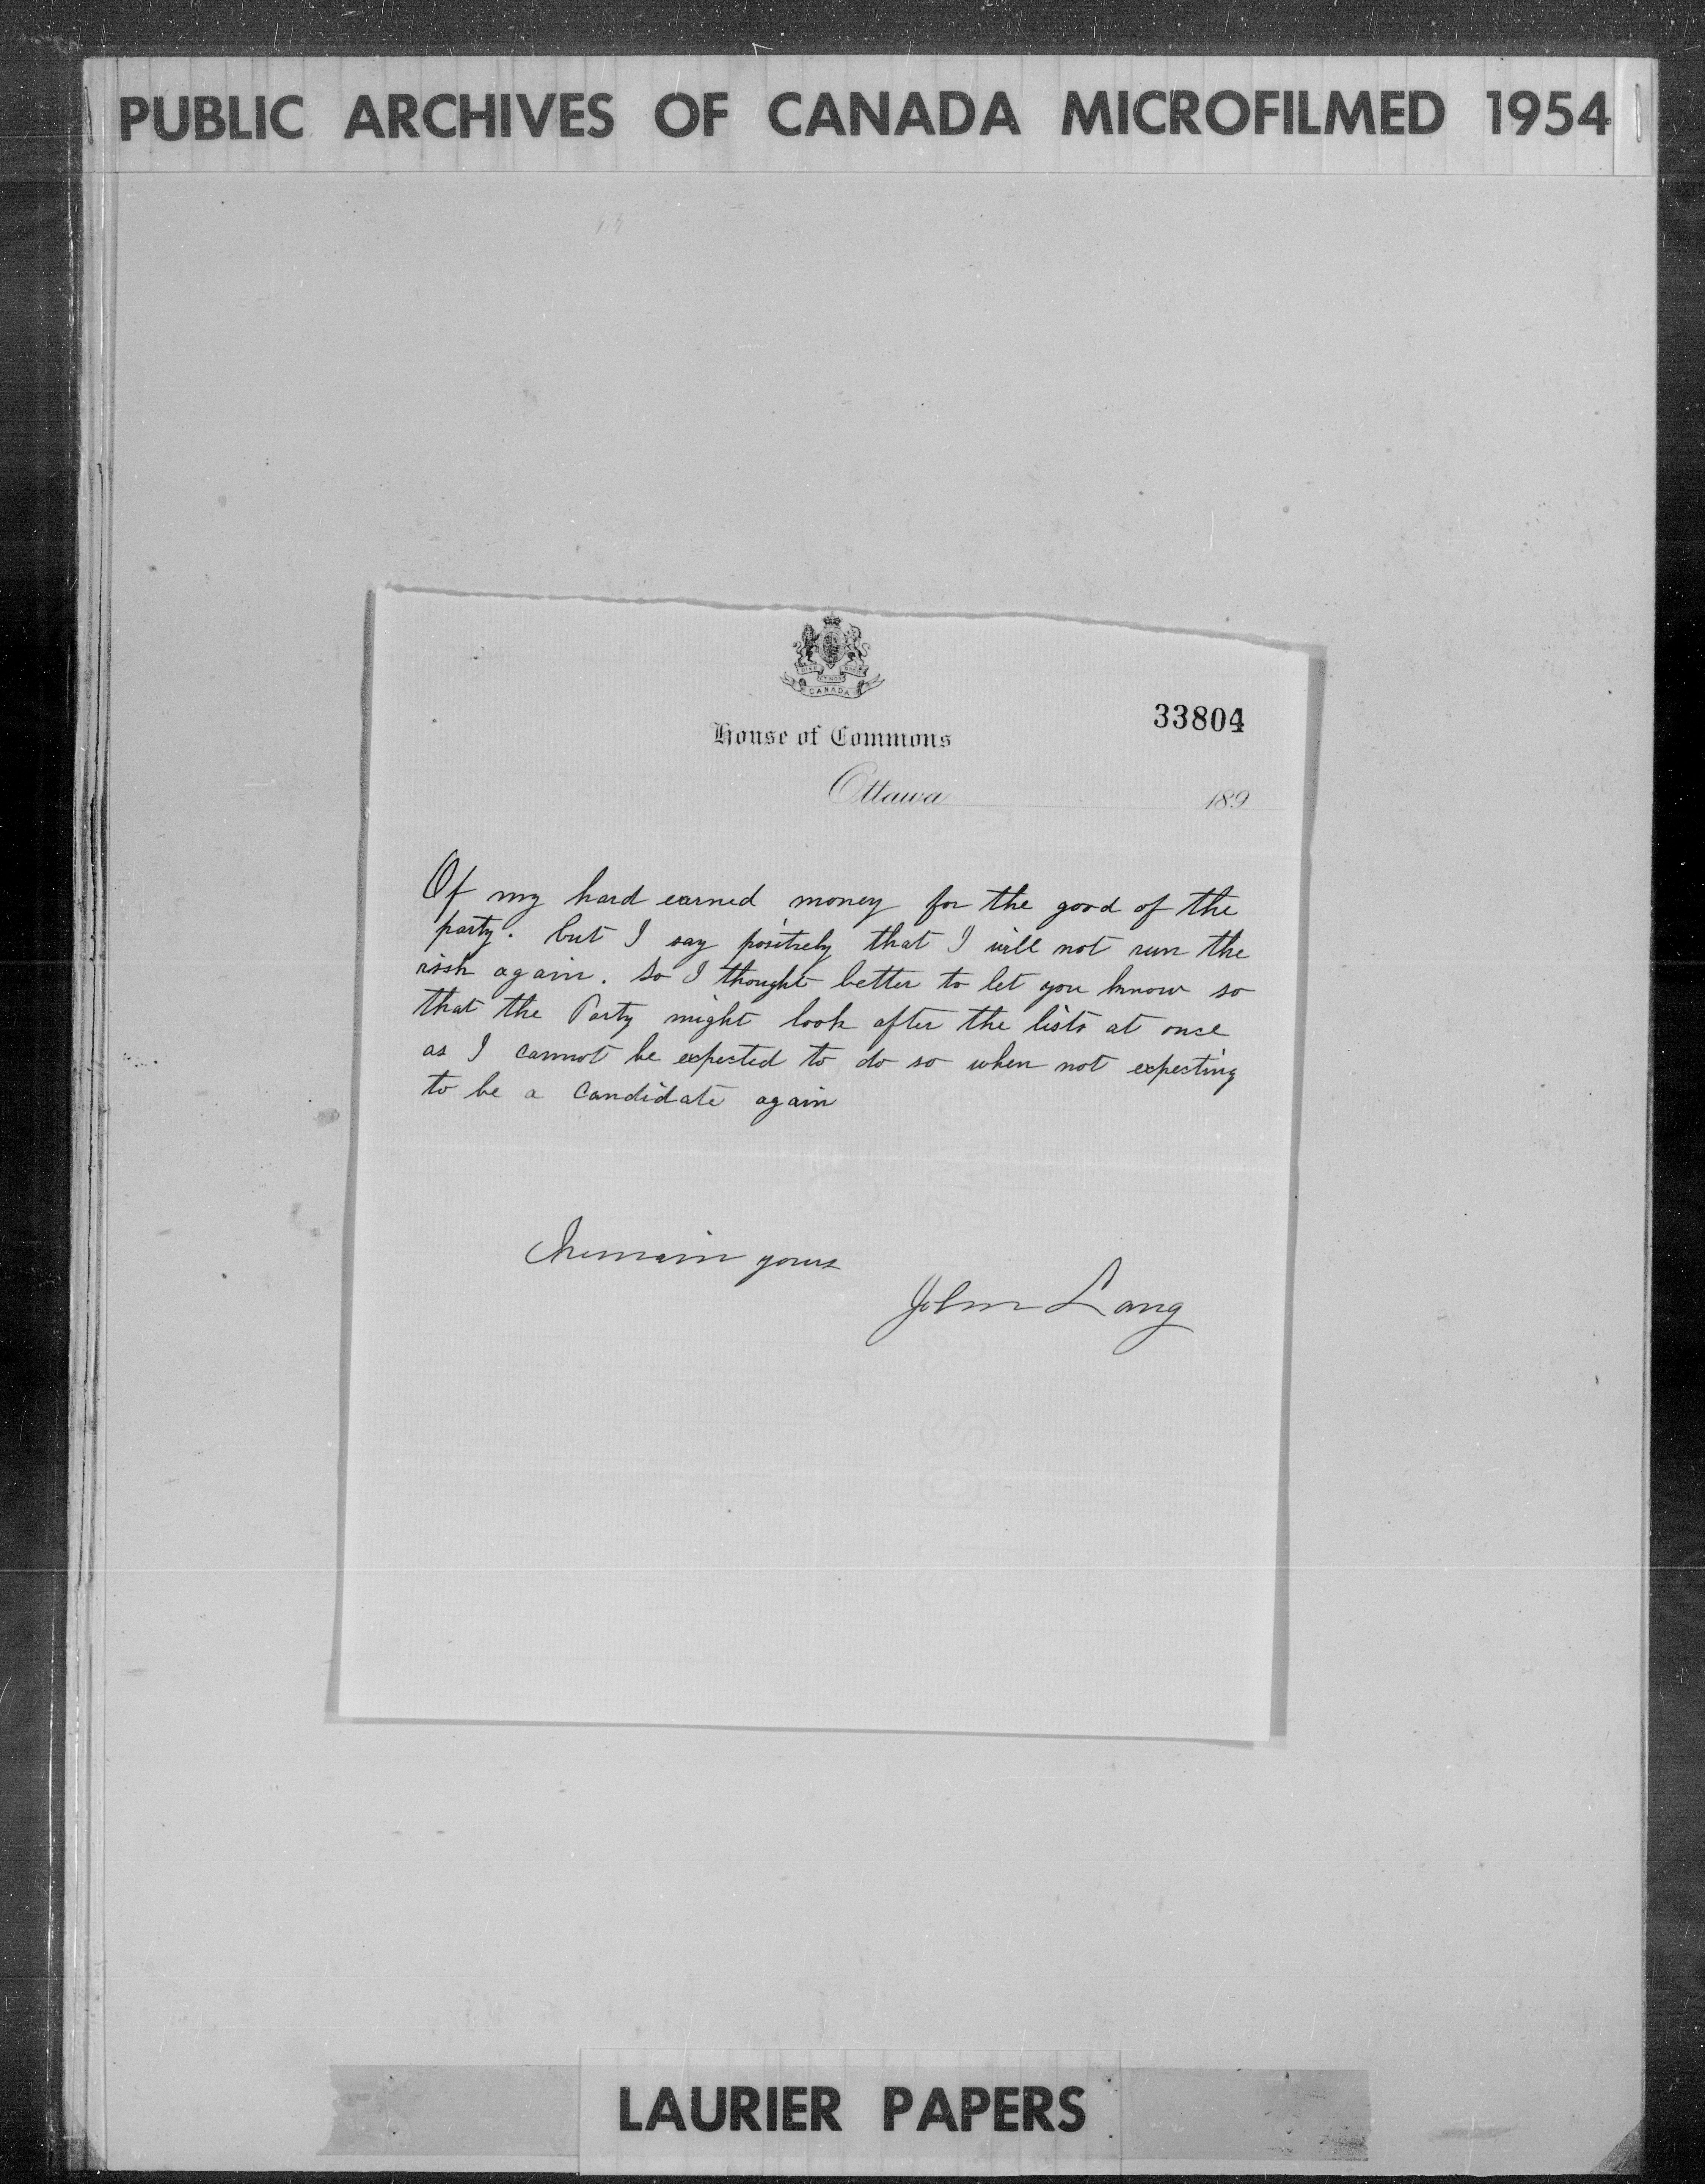 PUBLIC ARCHIVES OF CANADA MICROFILMED 1954
CANADA
33804
House of Commons
Ottawa 189
Of my hard earned money for the good of the
party. but I say positively that I will not run the
risk again. So I thought better to let you know so
that the Party might look after the lists at once
as I cannot be expected to do so when not expecting
to be a Candidate again
I remain yours
John Lang
LAURIER PAPERS